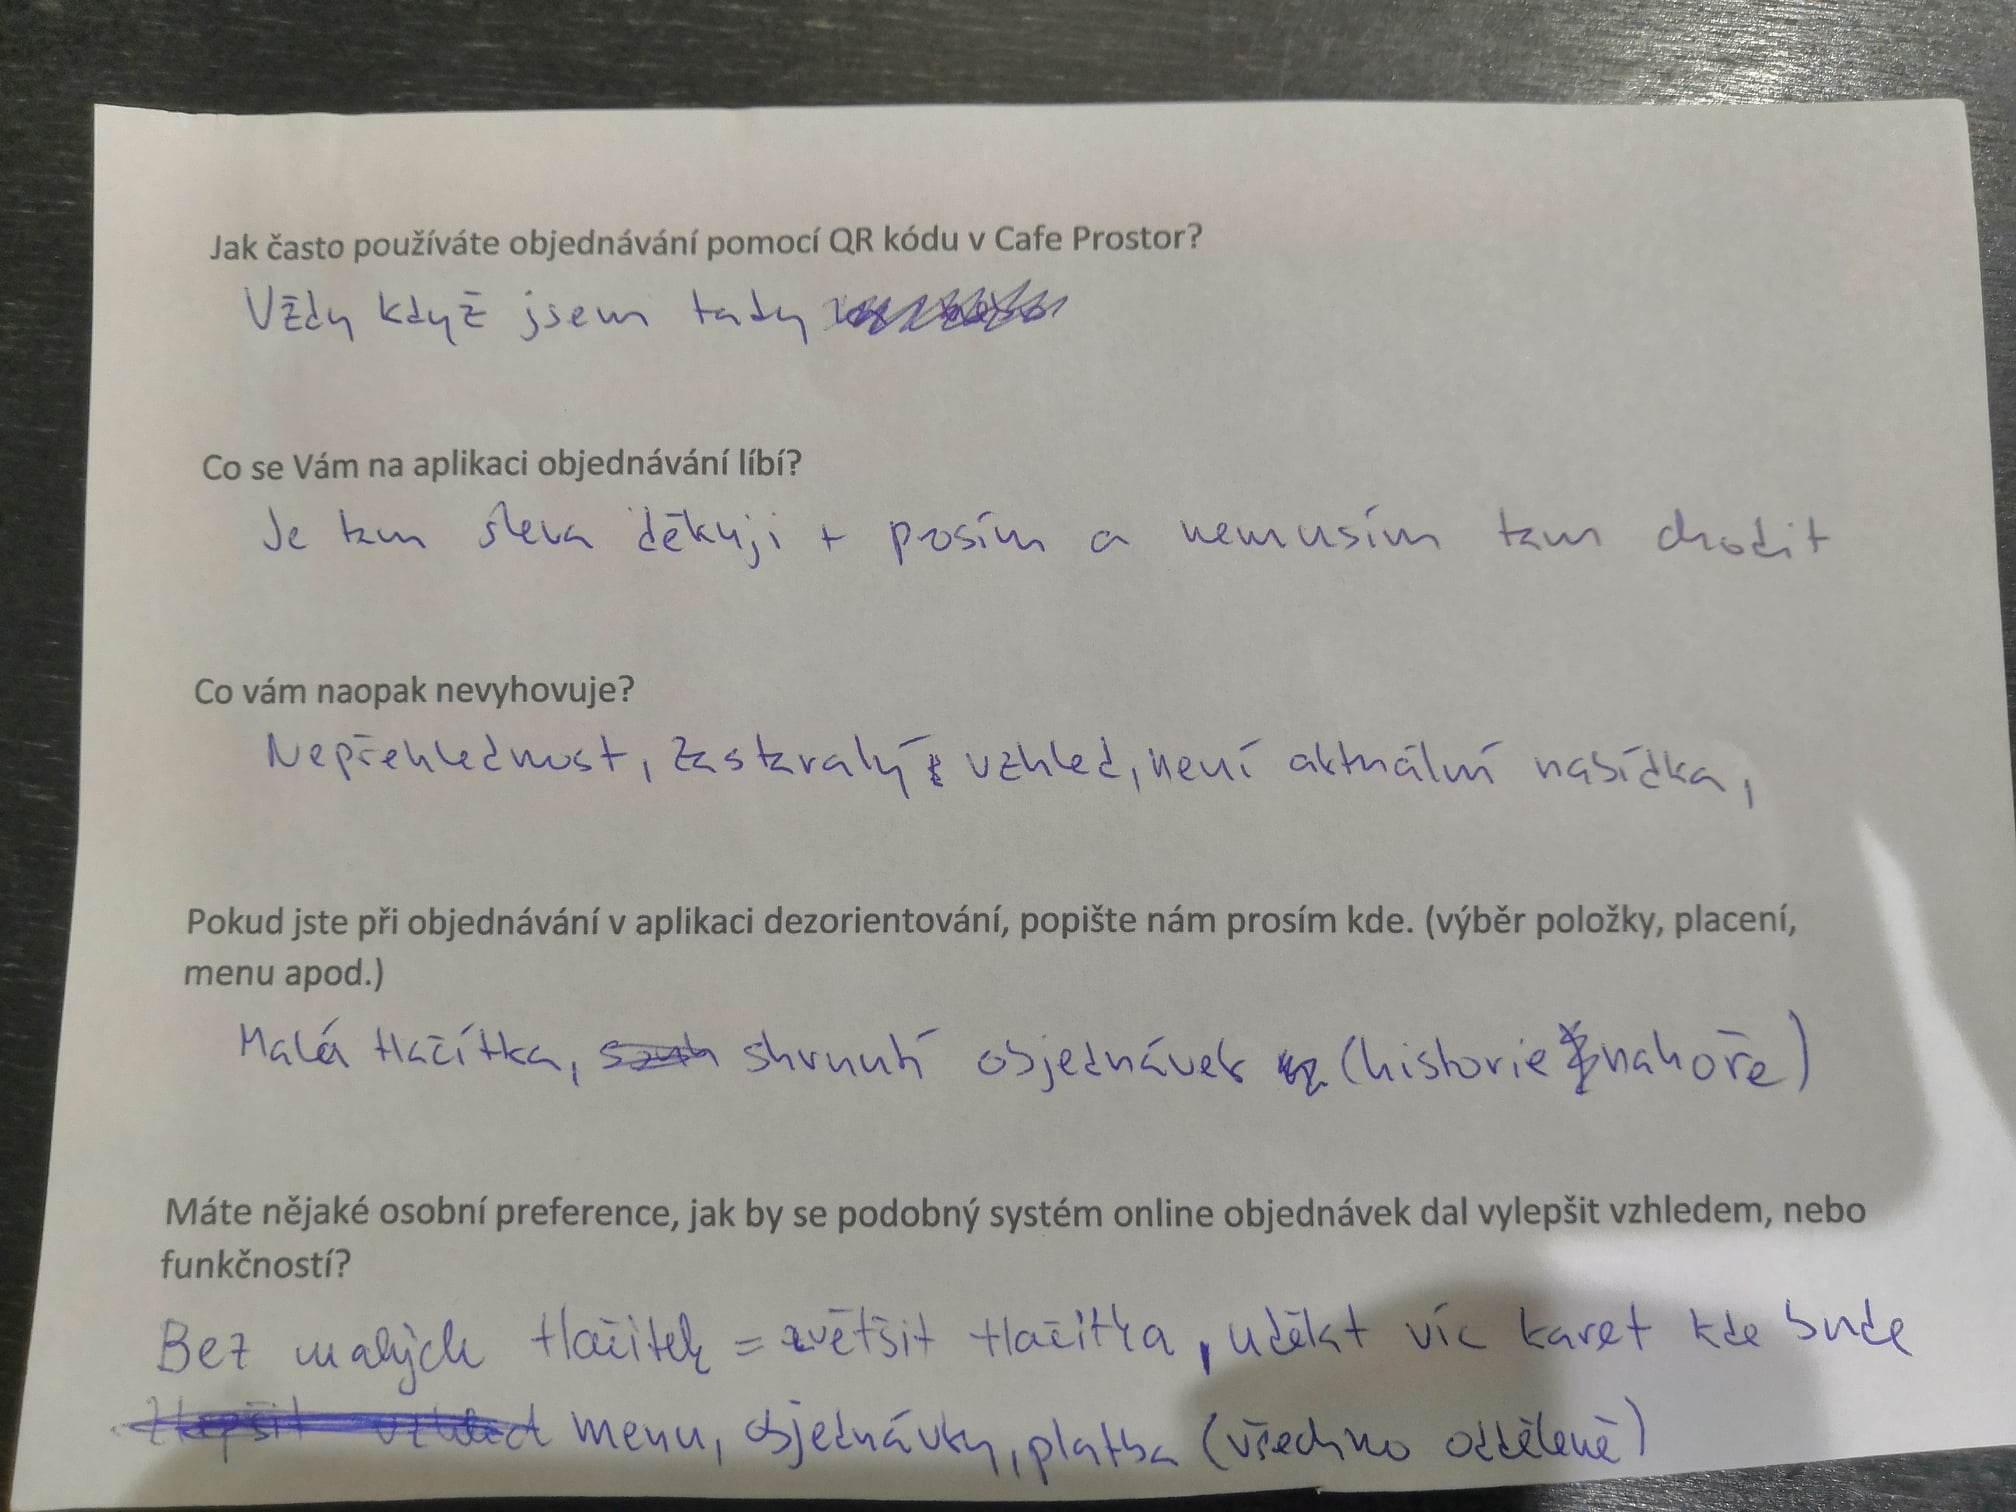 Jak často používáte objednávání pomocí QR kódu v Cafe Prostor?
Vždy když jsem tady
Co se Vám na aplikaci objednávání líbí?
Je tam sleva děkuji + prosím a nemusím tam chodit
Co vám naopak nevyhovuje?
Nepřehlednost, zastaralý vzhled, není aktuální nabídka,
Pokud jste při objednávání v aplikaci dezorientování, popište nám prosím kde. (výběr položky, placení,
menu apod.)
Malá tlačítka, shrnutí objednávek (historie nahoře)
Máte nějaké osobní preference, jak by se podobný systém online objednávek dal vylepšit vzhledem, nebo
funkčností?
Bez malých tlačitek = zvětšit tlačítka, udělat víc karet kde bude
menu, objednávky, platba (všechno odděleně)